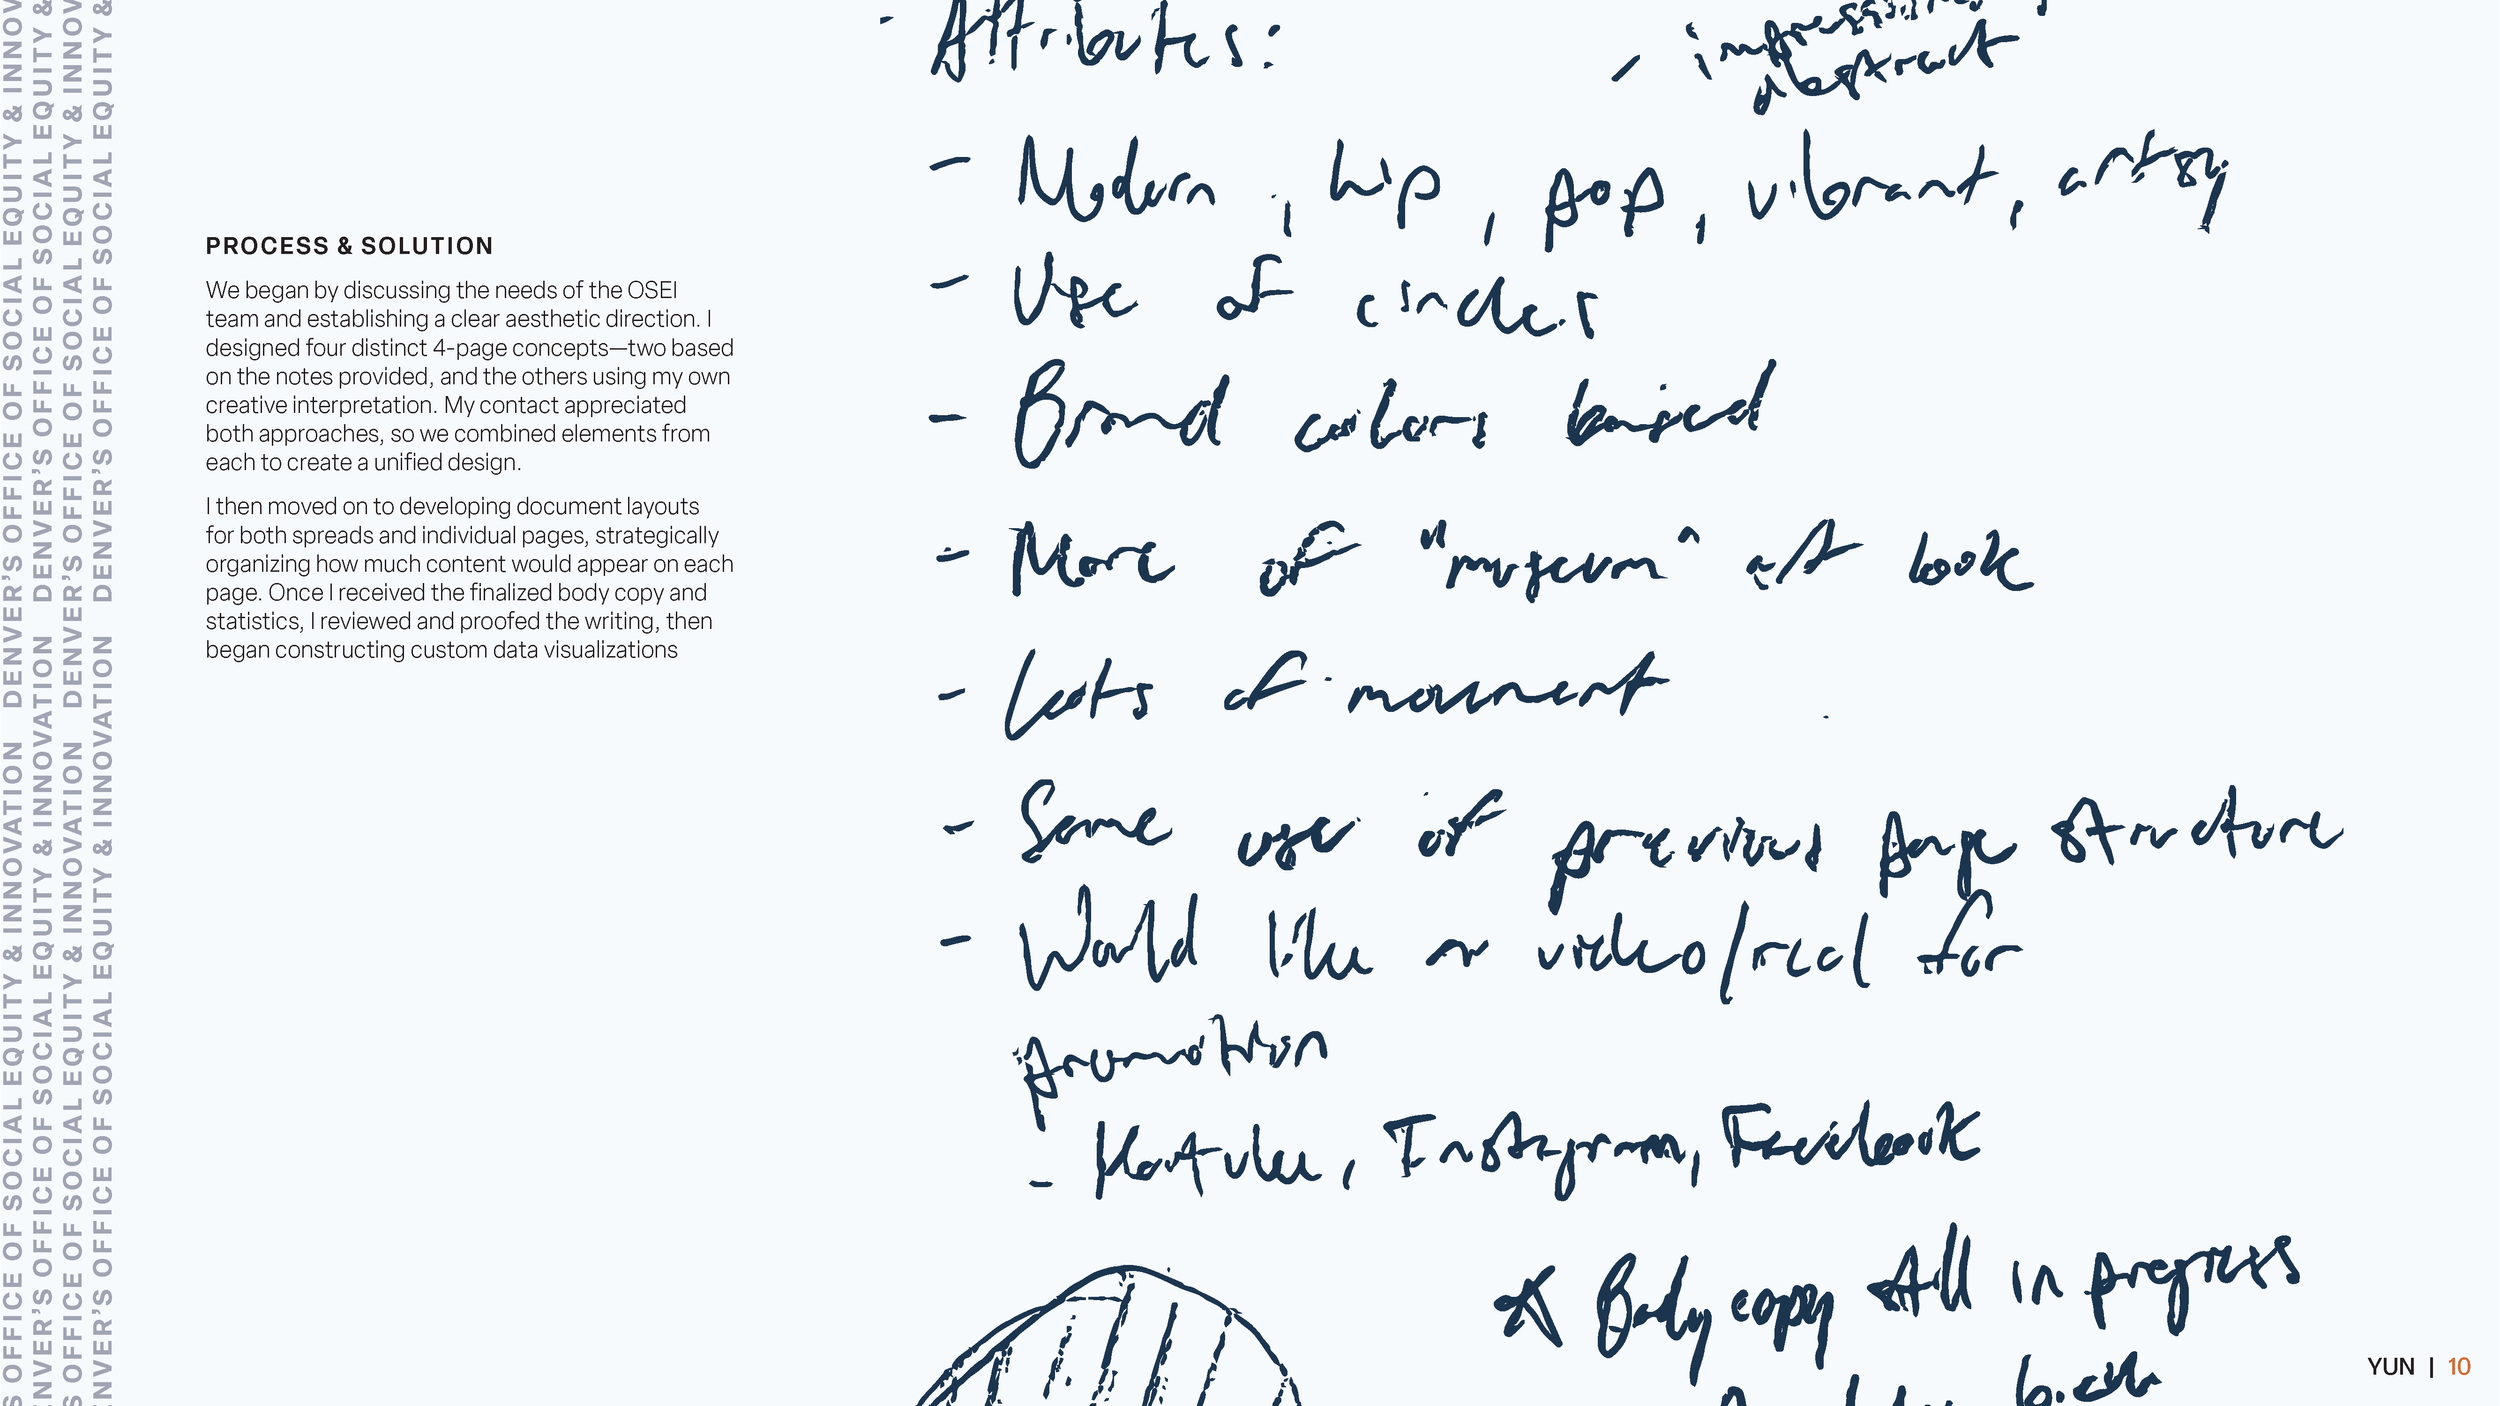 DENVER'S OFFICE OF SOCIAL EQUITY & INNOVATION
DENVER'S OFFICE OF SOCIAL EQUITY & INNOVATION
DENVER'S OFFICE OF SOCIAL EQUITY & INNOVATION
DENVER'S OFFICE OF SOCIAL EQUITY & INNOVATION
PROCESS & SOLUTION
We began by discussing the needs of the OSEI
team and establishing a clear aesthetic direction. I
designed four distinct 4-page concepts—two based
on the notes provided, and the others using my own
creative interpretation. My contact appreciated
both approaches, so we combined elements from
each to create a unified design.
I then moved on to developing document layouts
for both spreads and individual pages, strategically
organizing how much content would appear on each
page. Once I received the finalized body copy and
statistics, I reviewed and proofed the writing, then
began constructing custom data visualizations
- Attributes:
- abstract
- Modern, hip, pop, vibrant, artsy
- Use of circles
- Brand colors
- More of "museum" art look
- Lots of movement
- Same use of previous page structure
- Would like a video/reel for
promotion
- YouTube, Instagram, Facebook
Body copy still in progress
YUN | 10